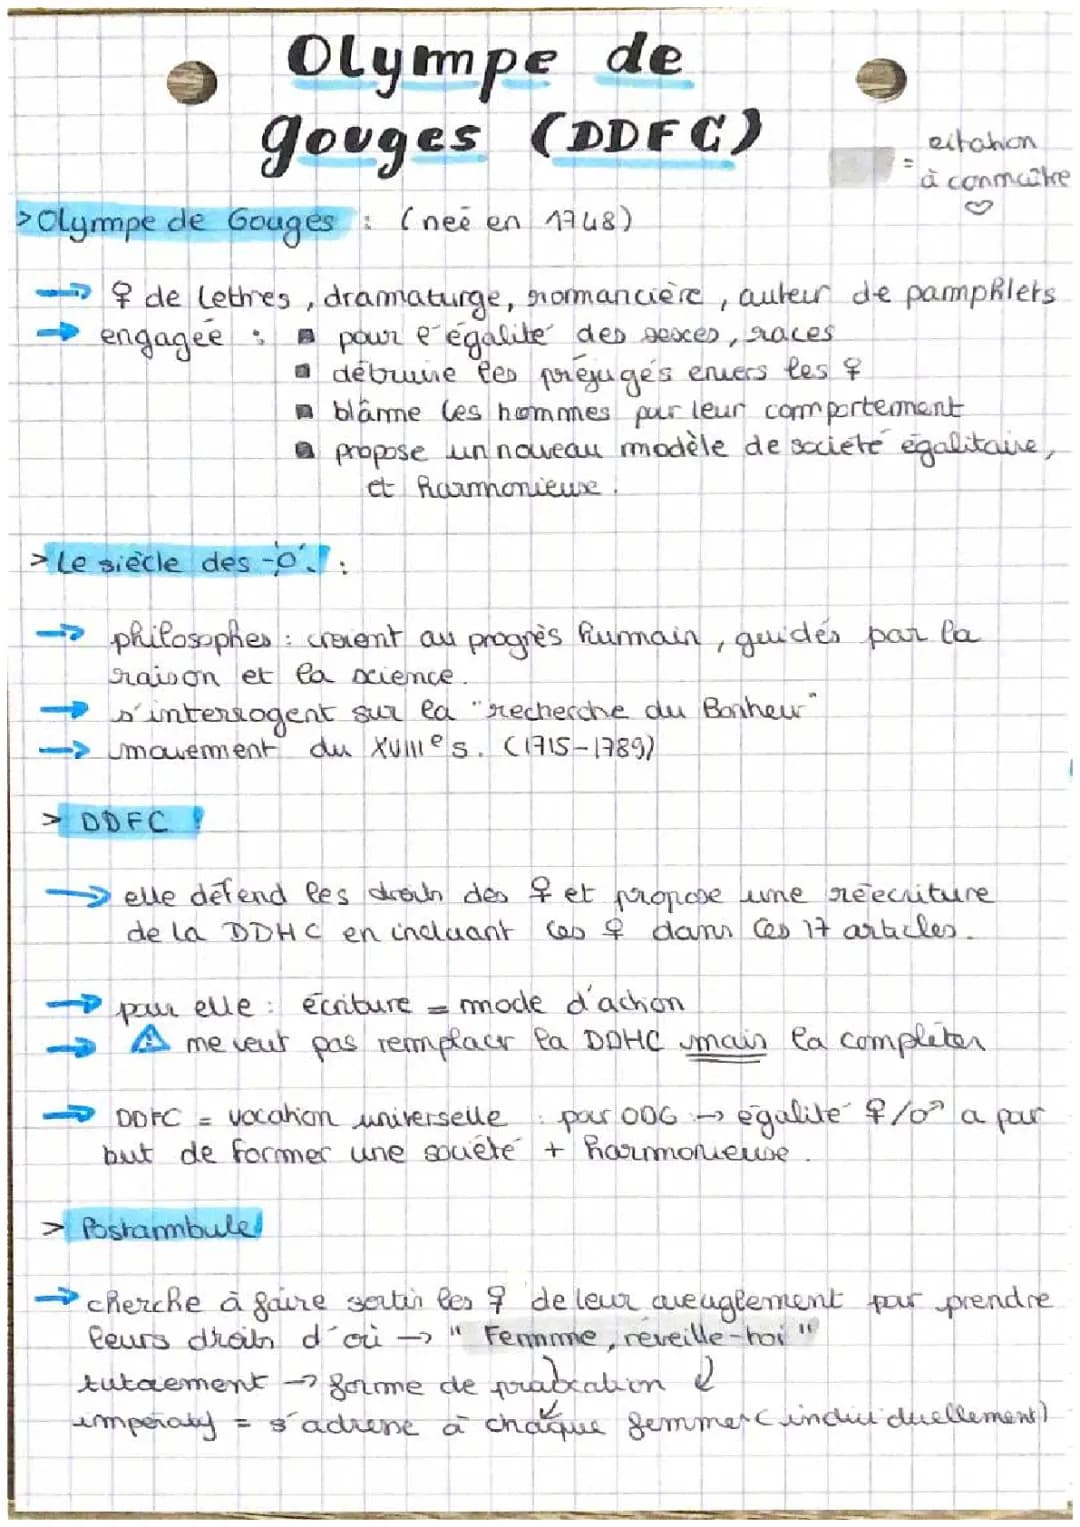 Olympe de
gouges (DDFC)
= citation
à connaître
♡
> Olympe de Gouges : (neé en 1748)
→ ♀ de lettres, dramaturge, romancière, auteur de pamphlets
→ engagée : ▪ pour l'égalité des sexes, races
▪ détruire les préjugés envers les ♀
▪ blâme les hommes pour leur comportement
▪ propose un nouveau modèle de société égalitaire,
et harmonieuse.
> Le siècle des :
→ philosophes : croient au progrès humain, guidés par la
raison et la science.
→ s'interrogent sur la "recherche du Bonheur"
→ mouvement du XVIIIe s. (1715-1789)
> DDFC !
→ elle défend les droits des ♀ et propose une réécriture
de la DDHC en incluant les ♀ dans ces 17 articles.
→ pour elle : écriture = mode d'action
→ ⚠ ne veut pas remplacer la DDHC mais la compléter
→ DDFC = vocation universelle : pour ODG → égalité ♀/♂ a pour
but de former une société + harmonieuse.
> Postambule
→ cherche à faire sortir les ♀ de leur aveuglement pour prendre
leurs droits d'où → "Femme, réveille-toi"
tutoiement → forme de
impératif = s'adresse à chaque femme (individuellement)